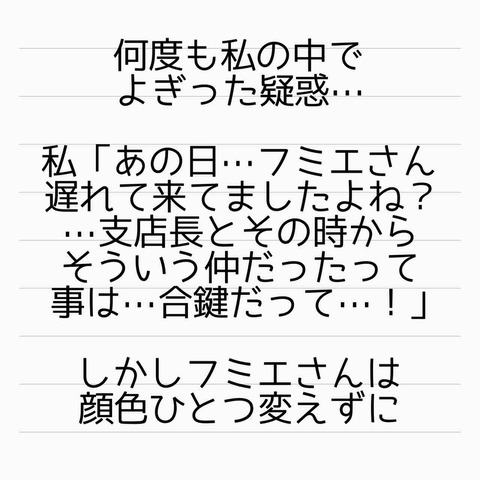 何度も私の中で
よぎった疑惑…
私「あの日…フミエさん
遅れて来てましたよね？
…支店長とその時から
そういう仲だったって
事は…合鍵だって…！」
しかしフミエさんは
顔色ひとつ変えずに